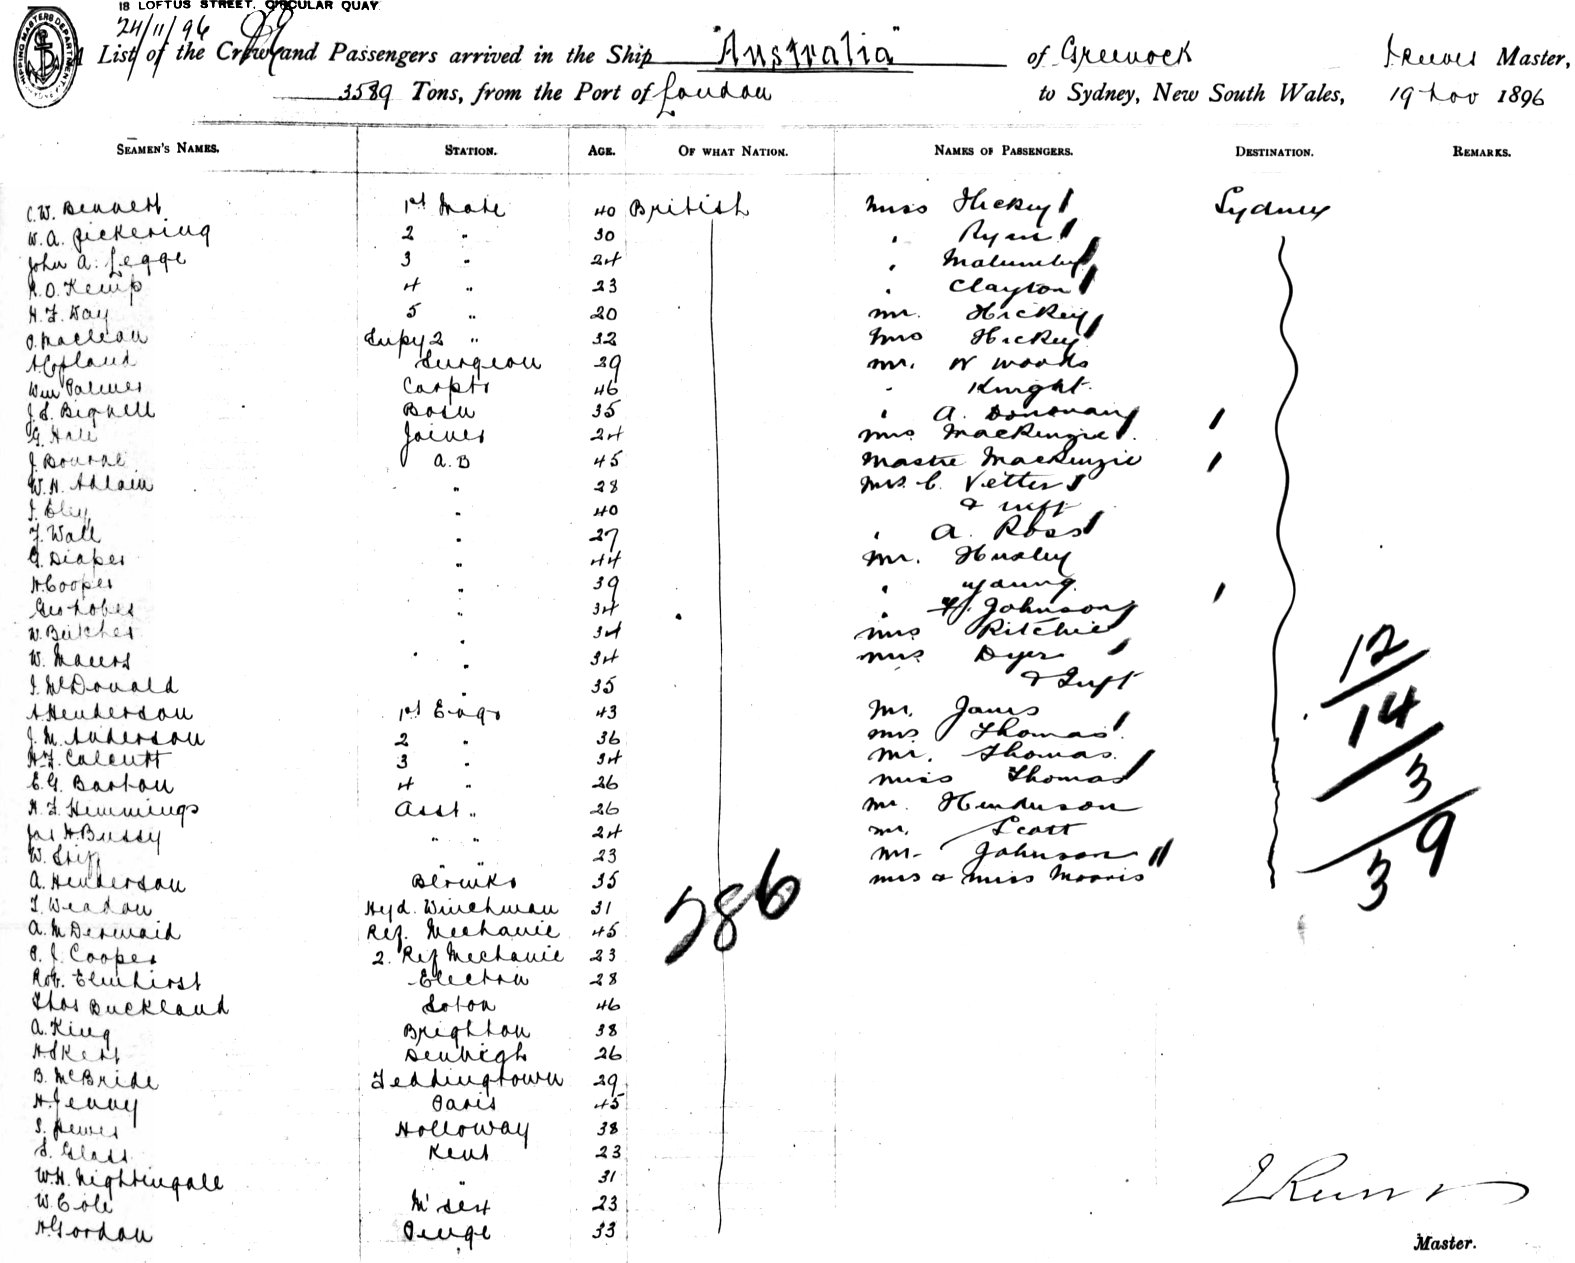 18 LOFTUS STREET, CIRCULAR QUAY
24/11/96
A List of the Crew and Passengers arrived in the Ship "Australia" of Greenock Master,
3589 Tons, from the Port of London to Sydney, New South Wales, 19 Nov 1896
SEAMEN'S NAMES. STATION. AGE. OF WHAT NATION. NAMES OF PASSENGERS. DESTINATION. REMARKS.
C.W. Bennett 1st Mate 40 British Miss Hickey Sydney
W. A. Pickering 2 " 30 " Ryan
John A. Legge 3 " 24 "
R. O. Kemp 4 " 23 " Clayton
H. F. Day 5 " 20 Mr. Hickey
Maclean Supy 2 " 32 Mrs Hickey
Surgeon 29 Mr. W Woods
Wm Palmer Carptr 46 " Knight
J. S. Bignell Bosn 35 " A. Donovan
G. Hall Joiner 24 Mrs MacKenzie
J. Bourne A.B 45 Mastre MacKenzie
W. H. Adlam " 28 Mrs. C. Vetter
J. Eley " 40 & inft
F. Wall " 27 " A. Ross
G. Diaper " 44 Mr. Huxley
H Cooper " 39 " Young
Geo " 34 " F. Johnson
W. Butcher " 34 Mrs Ritchie
W. " 34 Mrs Dyer
J. McDonald " 35 & Inft
A Henderson 1st Engr 43 Mr. James
J. M. Anderson 2 " 36 Mrs Thomas
H. F. Calcutt 3 " 34 Mr. Thomas
E. G. Barton 4 " 26 Miss Thomas
H. F. Hemmings Asst " 26 Mr. Henderson
Jas H. Bussy " " 24 Mr. Scott
W. " " 23 Mr. Johnson
A. Henderson 35 Mrs & Miss Morris
T. Weadon Hyd. Winchman 31
A. McDermaid Ref. Mechanic 45
P. J. Cooper 2. Ref Mechanic 23
Rob. Elmhirst Electrn 28
Thos Buckland Soton 46
A. King Brighton 38
H Skett Denbigh 26
B. McBride Teddingtown 29
H. Jenny Paris 45
S. Holloway 38
S. Glass Kent 23
W. H. Nightingale " 31
W. Cole M'sex 23
H Gordon Penge 33
586
12
14
3
9
3
Master.